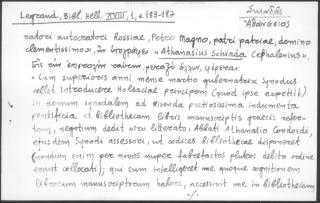 Legrand, Bibl. Hell. XVIII, 1, σ. 183-187
Σκιαδᾶς
Ἀθανάσιος
ratori autocratori Rossiae, Petro Magno, patri patriae, domino
clementissimo», ἐν ὑπογραφῇ «Athanasius Schiada Cephalenius»
Εἰς τὴν ταύτην, μεταξὺ ἄλλων, φέρεται:
«Cum superioris anni mense martio gubernatrix Synodus
vellet introducere Holsatiae principem (quod ipse expetiit)
in domum synodalem ad videnda pretiosissima indumenta
pontificia et bibliothecam libris manuscriptis graecis refer-
tam, negotium dedit viro literato, Abbati Athanasio Condoidi,
ejusdem Synodi assessori, ut codices bibliothecae disponeret
(nondum enim per novos nuper fabrefactos pluteos debito ordine
erant collocati); qui cum intelligeret me quoque cognitionem
librorum manuscriptorum habere, accersivit me in bibliothecam
-/.